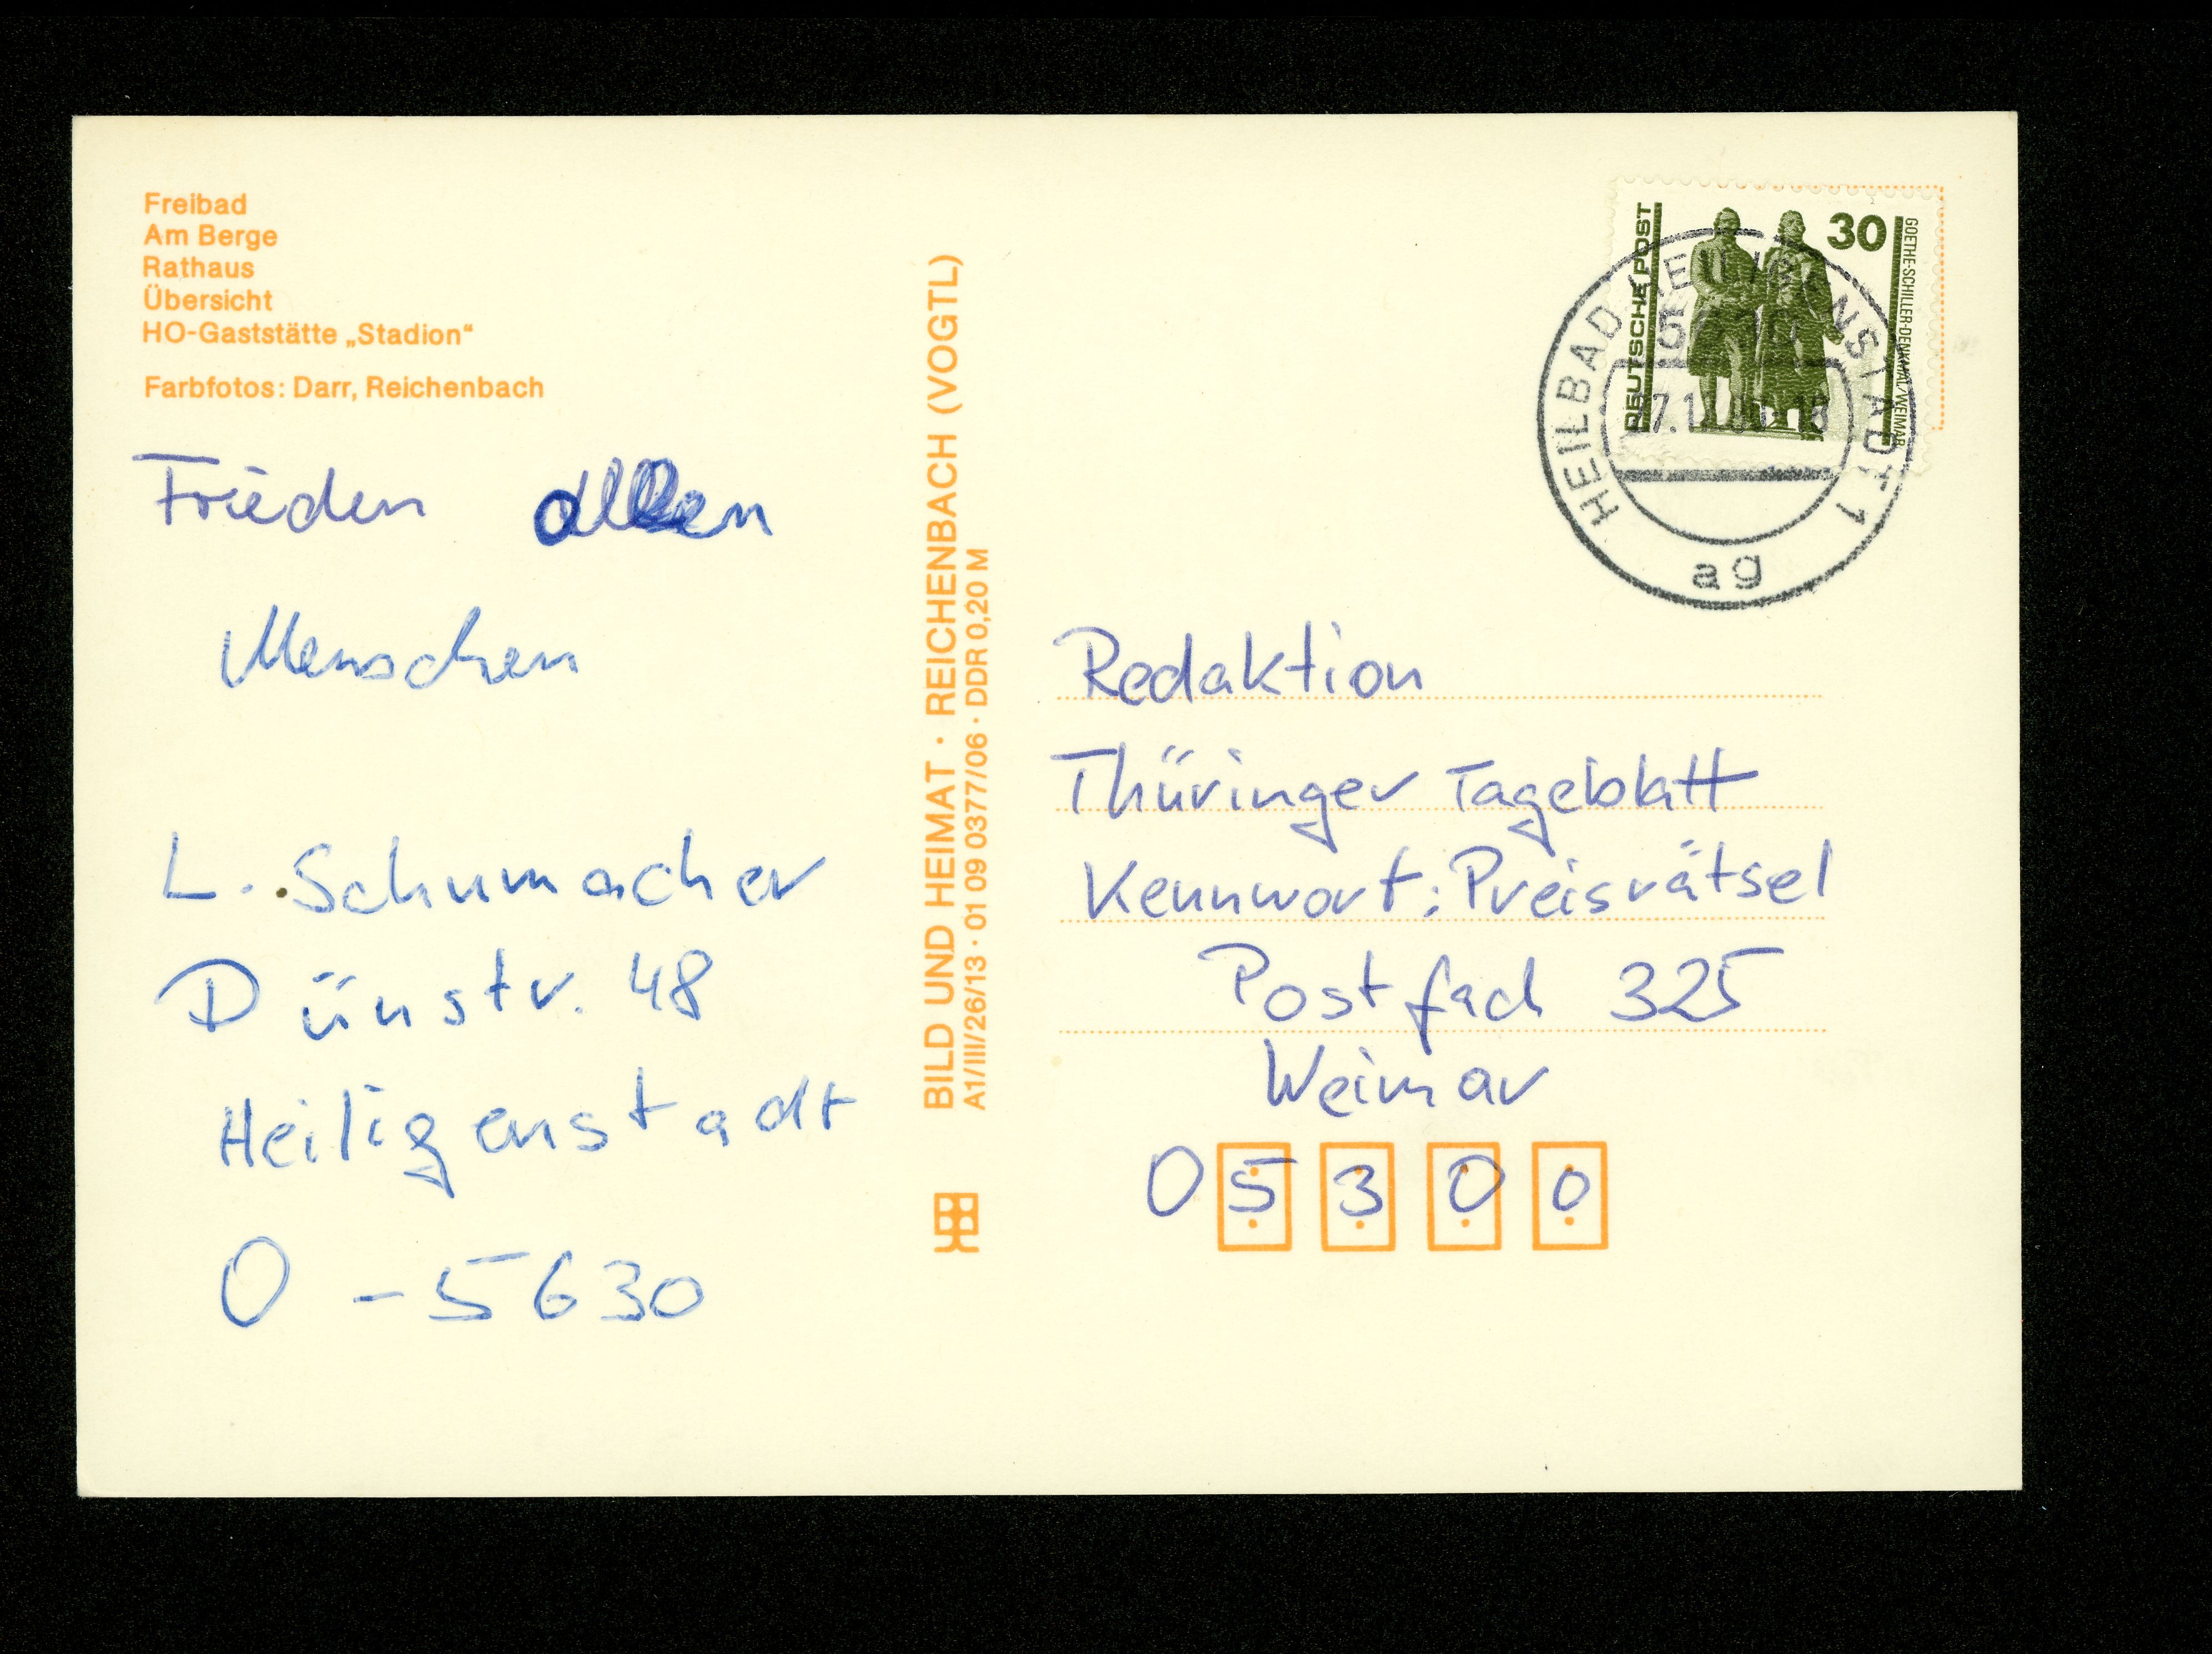 Freibad
Am Berge
Rathaus
Übersicht
HO-Gaststätte „Stadion“
Farbfotos: Darr, Reichenbach
Frieden allen
Menschen
L. Schumacher
Dünstr. 48
Heiligenstadt
O - 5630
BILD UND HEIMAT · REICHENBACH (VOGTL)
A1/III/26/13 · 01 09 0377/06 · DDR 0,20 M
DEUTSCHE POST
30
GOETHE-SCHILLER-DENKMAL/WEIMAR
HEILBAD HEILIGENSTADT 1
ag
Redaktion
Thüringer Tageblatt
Kennwort: Preisrätsel
Postfach 325
Weimar
O 5 3 0 0